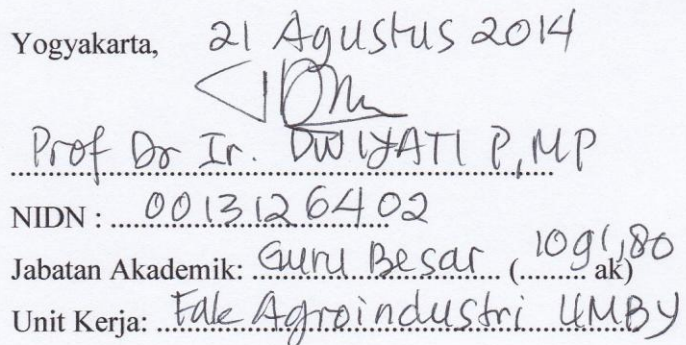 Yogyakarta, 21 Agustus 2014
Prof Dr Ir. DWIYATI P, MP
NIDN : 0013126402
Jabatan Akademik: Guru Besar (1091,80 ak)
Unit Kerja: Fak Agroindustri UMBY